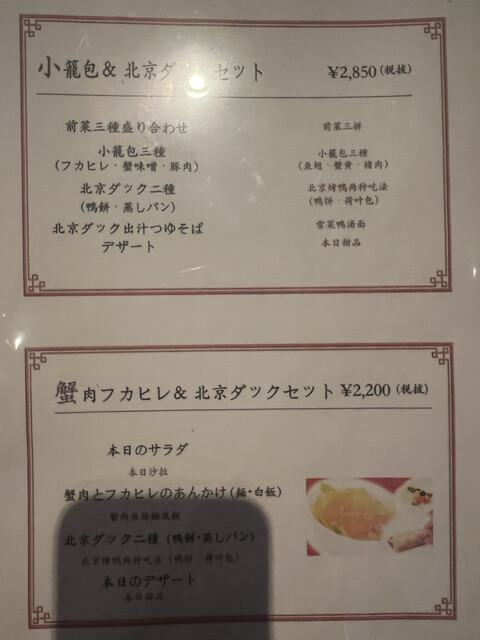 小籠包& 北京ダックセット ¥2,850 (税抜)
前菜三種盛り合わせ 前菜三拼
小籠包三種 小籠包三種
(フカヒレ・蟹味噌・豚肉) (鱼翅・蟹黄・猪肉)
北京ダック二種 北京烤鴨两种吃法
(鴨餅・蒸しパン) (鸭饼・荷叶包)
北京ダック出汁つゆそば 雪菜鸭汤面
デザート 本日甜品
蟹肉フカヒレ& 北京ダックセット ¥2,200 (税抜)
本日のサラダ
本日沙拉
蟹肉とフカヒレのあんかけ(麺・白飯)
蟹肉鱼翅
北京ダック二種 (鴨餅・蒸しパン)
北京烤鴨两种吃法 (鸭饼 荷叶包)
本日のデザート
本日甜品